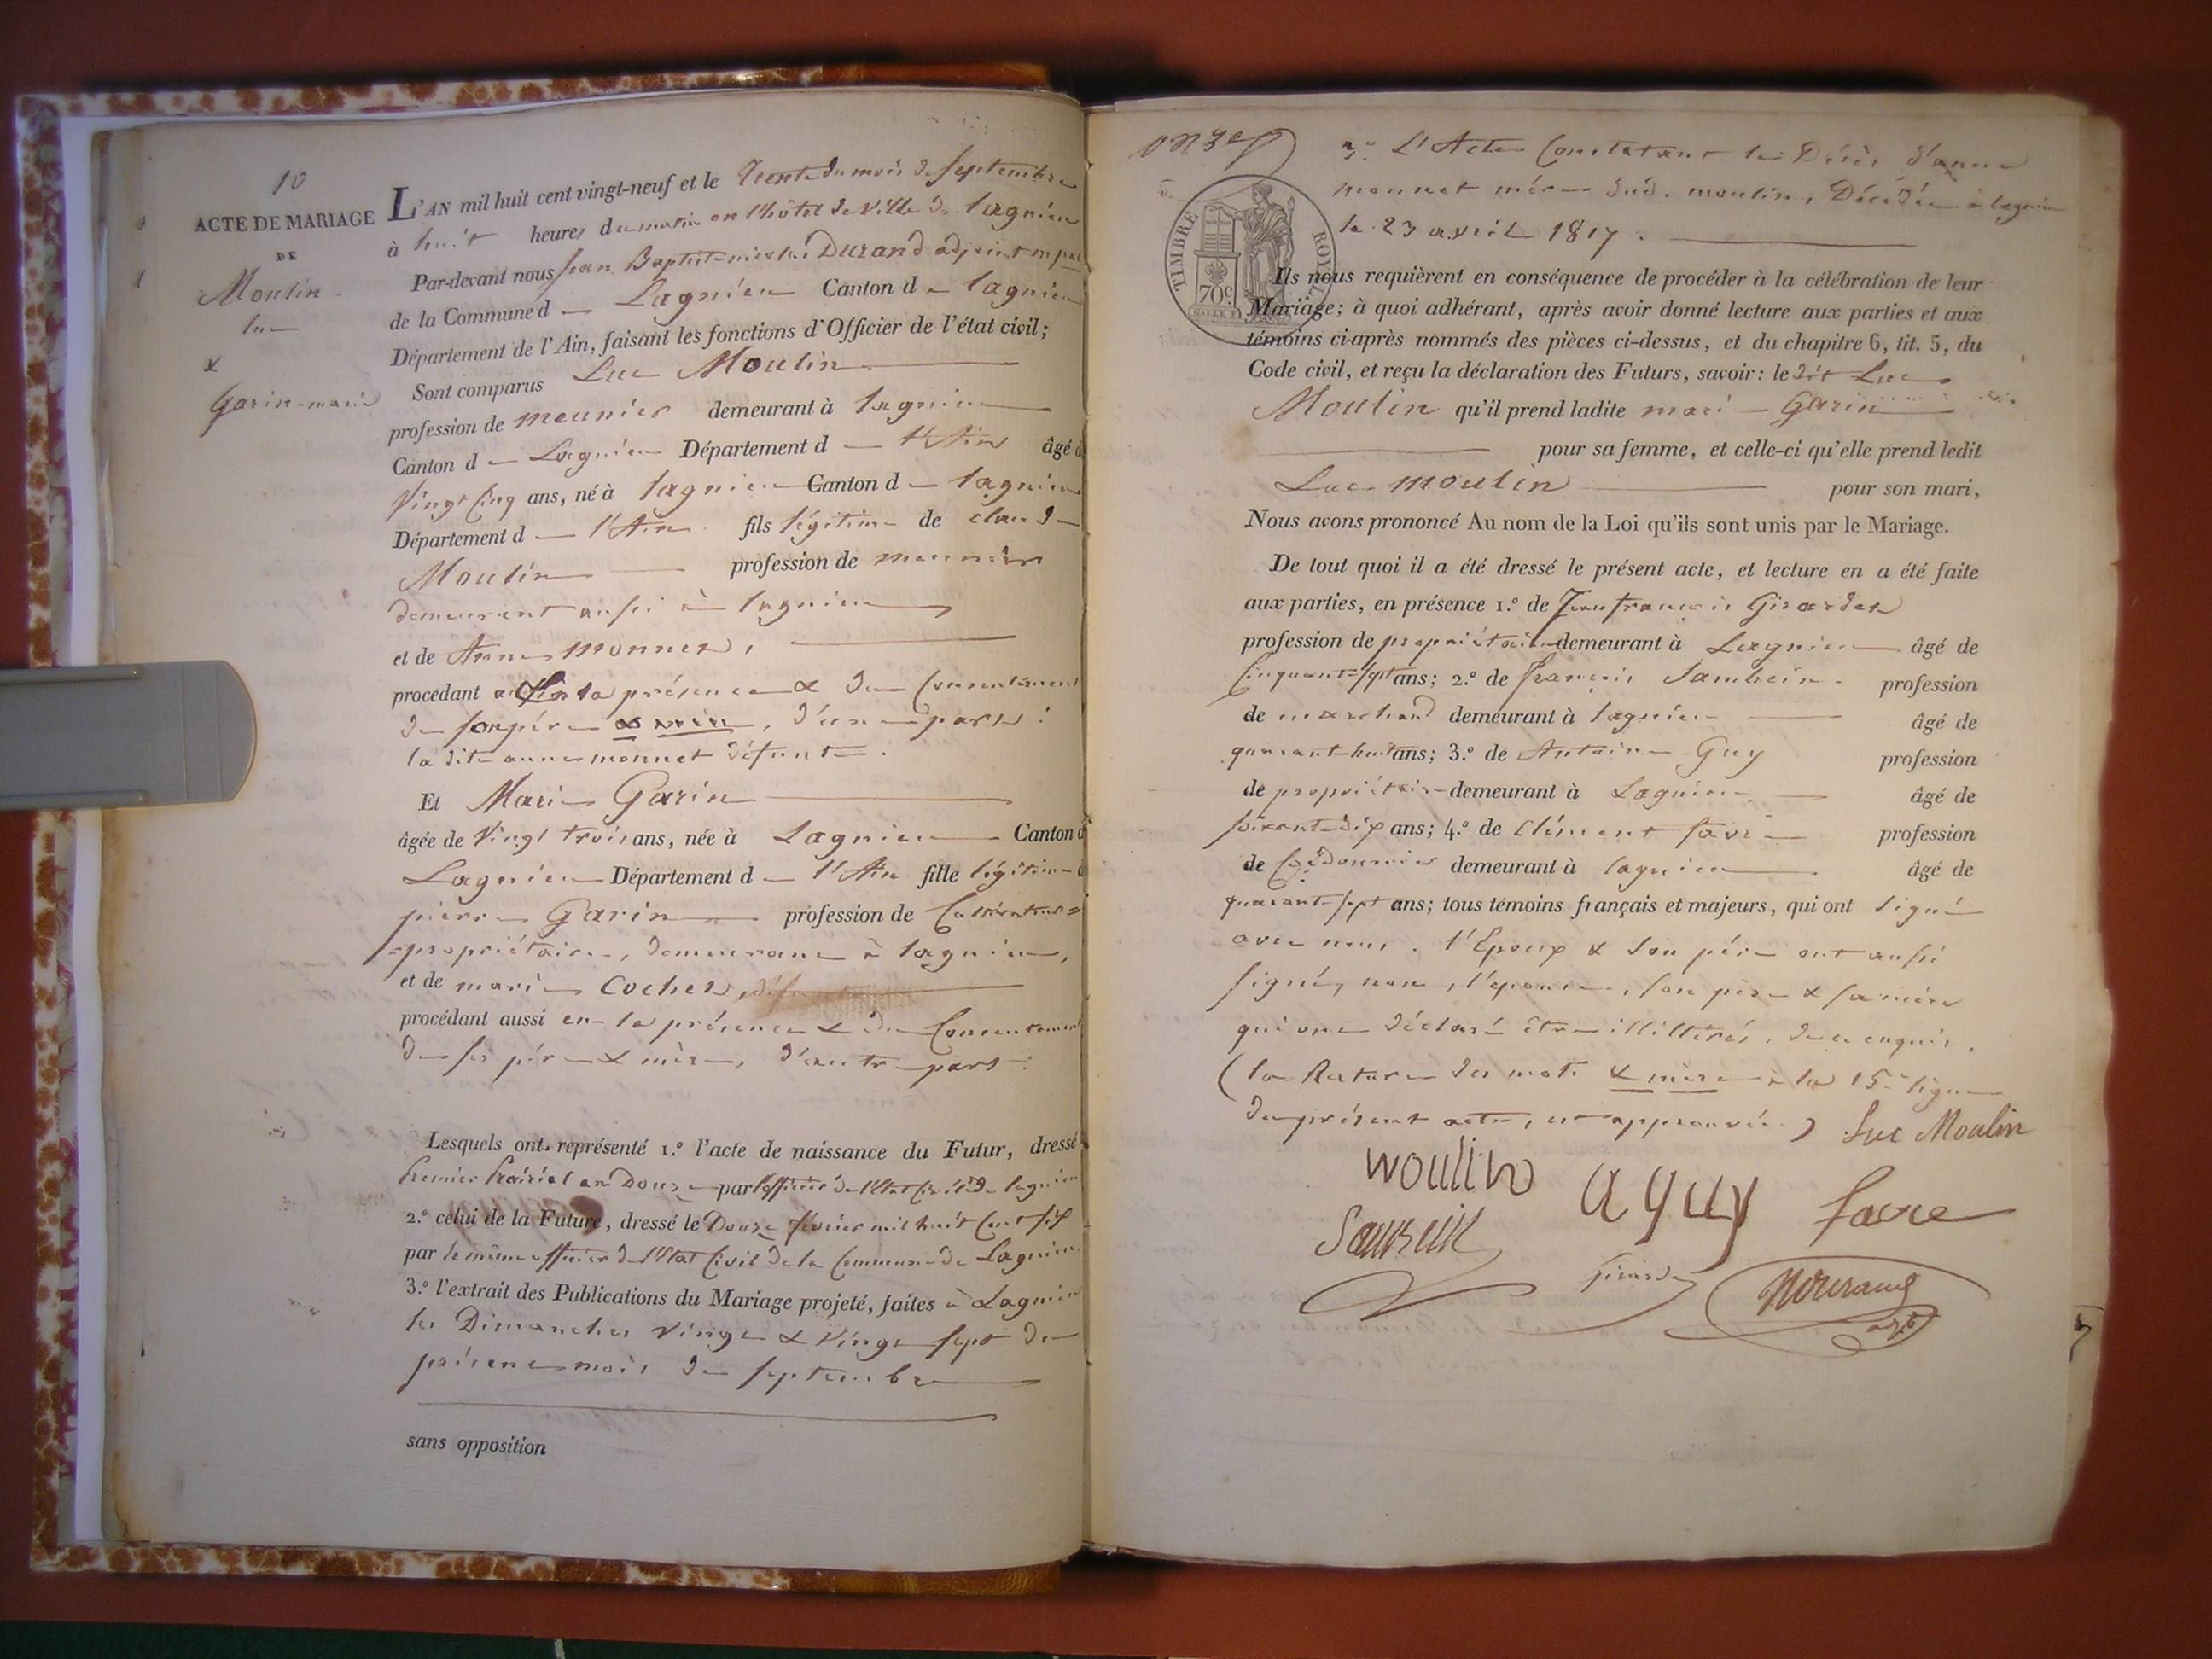 10
ACTE DE MARIAGE
DE
Moulin
Luc
&
Garin marie
L'AN mil huit cent vingt-neuf et le trente du mois de septembre
à huit heures du matin en l'hôtel de ville de lagnieu
Par-devant nous jean Baptiste nicolas Durand adjoint
de la Commune d Lagnieu Canton d lagnieu
Département de l'Ain, faisant les fonctions d'Officier de l'état civil;
Sont comparus Luc Moulin
profession de meunier demeurant à lagnieu
Canton d Lagnieu Département d l'Ain âgé d
Vingt Cinq ans, né à lagnieu Canton d lagnieu
Département d l'Ain fils légitime de claude
Moulin profession de meunier
demeurant aussi à lagnieu
et de Anne monnet,
procedant en la présence & du Consentement
de son père & mère, d'une part:
la dite anne monnet défunte.
Et Marie Garin
âgée de Vingt trois ans, née à Lagnieu Canton d
Lagnieu Département d l'Ain fille légitime d
pierre Garin profession de Cultivateur
propriétaire, demeurant à lagnieu,
et de marie Cochet,
procédant aussi en la présence & du Consentement
de ses père & mère, d'autre part:
Lesquels ont représenté 1.º l'acte de naissance du Futur, dressé
premier prairial an Douze par l'officier de l'Etat Civil de lagnieu
2.º celui de la Future, dressé le Douze février mil huit Cent six
par le même officier de l'Etat Civil de la Commune de Lagnieu
3.º l'extrait des Publications du Mariage projeté, faites à Lagnieu
les Dimanches Vingt & Vingt sept du
présent mois de septembre
sans opposition
onze
3.º L'Acte Constatant le Décès d'anne
monnet mère dud. moulin, Décédée à lagnieu
le 23 avril 1817.
TIMBRE ROYAL
70c
Ils nous requièrent en conséquence de procéder à la célébration de leur
Mariage; à quoi adhérant, après avoir donné lecture aux parties et aux
témoins ci-après nommés des pièces ci-dessus, et du chapitre 6, tit. 5, du
Code civil, et reçu la déclaration des Futurs, savoir: le dit Luc
Moulin qu'il prend ladite marie Garin
pour sa femme, et celle-ci qu'elle prend ledit
Luc moulin pour son mari,
Nous avons prononcé Au nom de la Loi qu'ils sont unis par le Mariage.
De tout quoi il a été dressé le présent acte, et lecture en a été faite
aux parties, en présence 1.º de Jean françois Girardet
profession de propriétaire demeurant à Lagnieu âgé de
Cinquante sept ans; 2.º de françois Sambein profession
de marchand demeurant à lagnieu âgé de
quarante huit ans; 3.º de Antoine Guy profession
de propriétaire demeurant à Lagnieu âgé de
soixante dix ans; 4.º de Clément favre profession
de Cordonnier demeurant à lagnieu âgé de
quarante sept ans; tous témoins français et majeurs, qui ont signé
avec nous. l'Epoux & son père ont aussi
signé, non l'épouse, son père & sa mère
qui ont déclaré être illittérés, de ce enquis.
(la Rature des mots & mère à la 15e ligne
du présent acte, est approuvée.) Luc Moulin
moulin a guy favre
Girardet